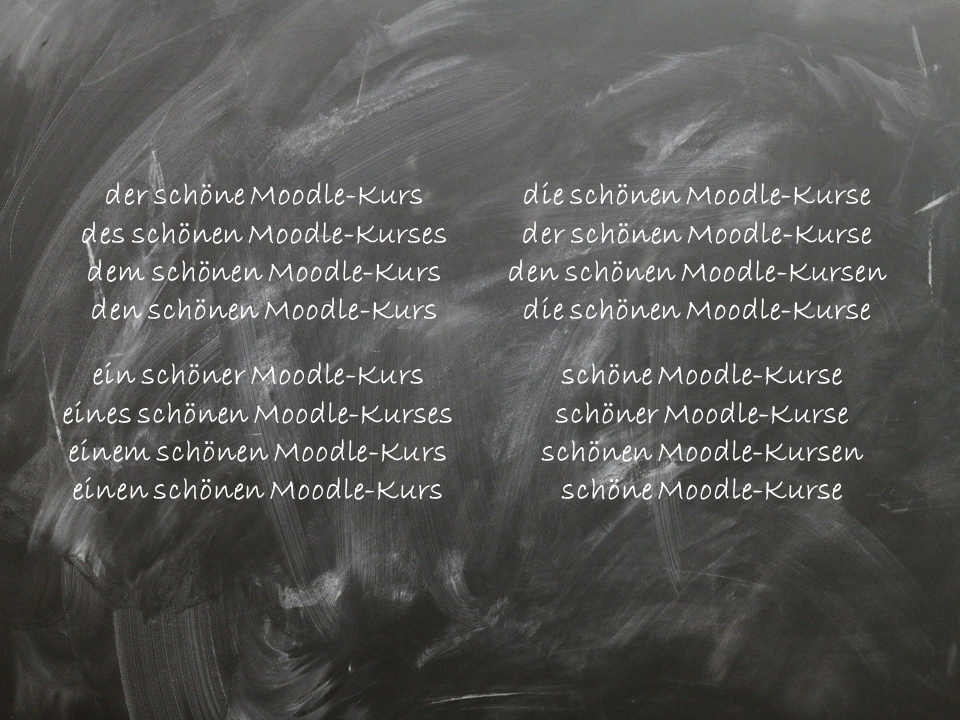 der schöne Moodle-Kurs
des schönen Moodle-Kurses
dem schönen Moodle-Kurs
den schönen Moodle-Kurs
die schönen Moodle-Kurse
der schönen Moodle-Kurse
den schönen Moodle-Kursen
die schönen Moodle-Kurse
ein schöner Moodle-Kurs
eines schönen Moodle-Kurses
einem schönen Moodle-Kurs
einen schönen Moodle-Kurs
schöne Moodle-Kurse
schöner Moodle-Kurse
schönen Moodle-Kursen
schöne Moodle-Kurse